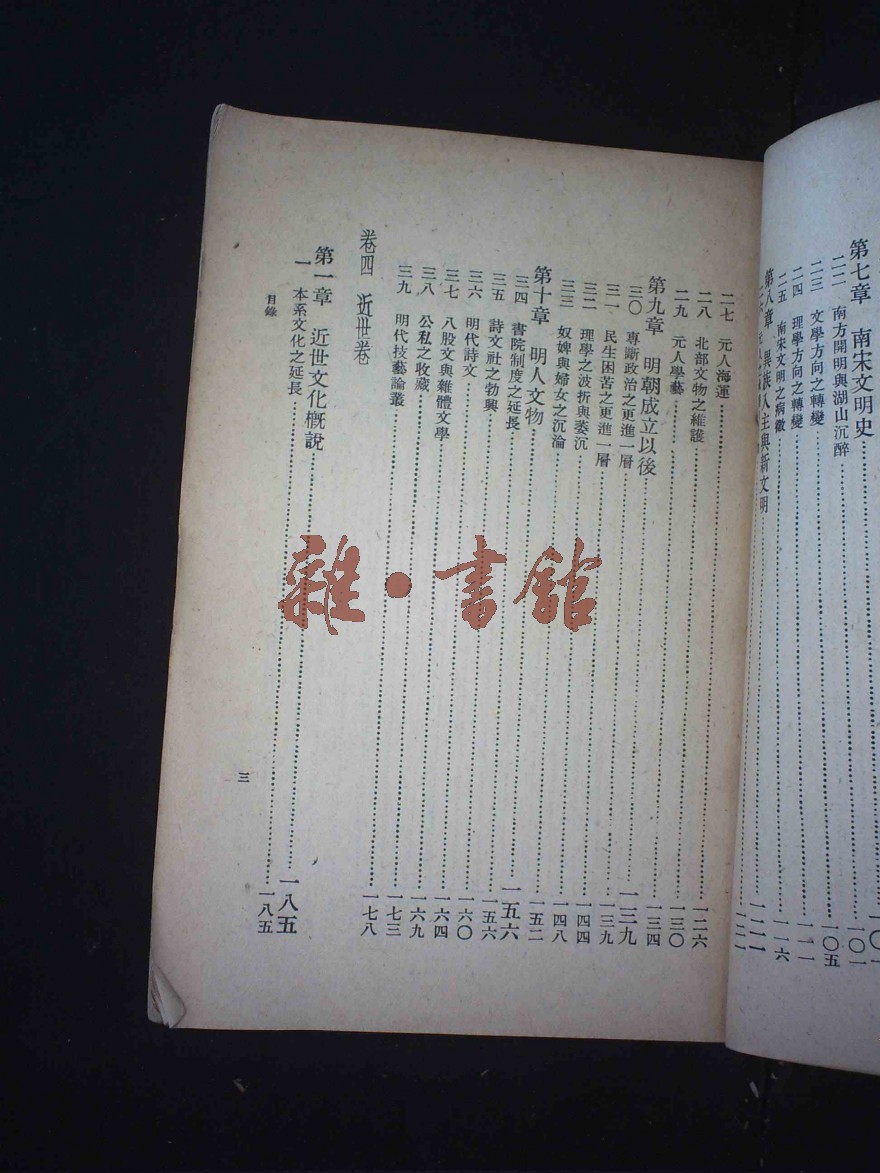 第七章 南宋文明史
二二 南方開明與湖山沉醉 一〇一
二三 文學方向之轉變 一〇五
二四 理學方向之轉變 一一一
二五 南宋文明之病徵 一一六
第八章 異族人主與新文明 一二一
二六 一二一
二七 元人海運 一二六
二八 北部文物之維護 一三〇
二九 元人學藝 一三四
第九章 明朝成立以後 一三九
三〇 專斷政治之更進一層 一三九
三一 民生困苦之更進一層 一四四
三二 理學之波折與萎沉 一四八
三三 奴婢與婦女之沉淪 一五二
第十章 明人文物 一五六
三四 書院制度之延長 一五六
三五 詩文社之勃興 一六〇
三六 明代詩文 一六四
三七 八股文與雜體文學 一六九
三八 公私之收藏 一七三
三九 明代技藝論叢 一七八
卷四 近世卷
第一章 近世文化概說 一八五
一 本系文化之延長 一八五
目錄
三
雜·書館